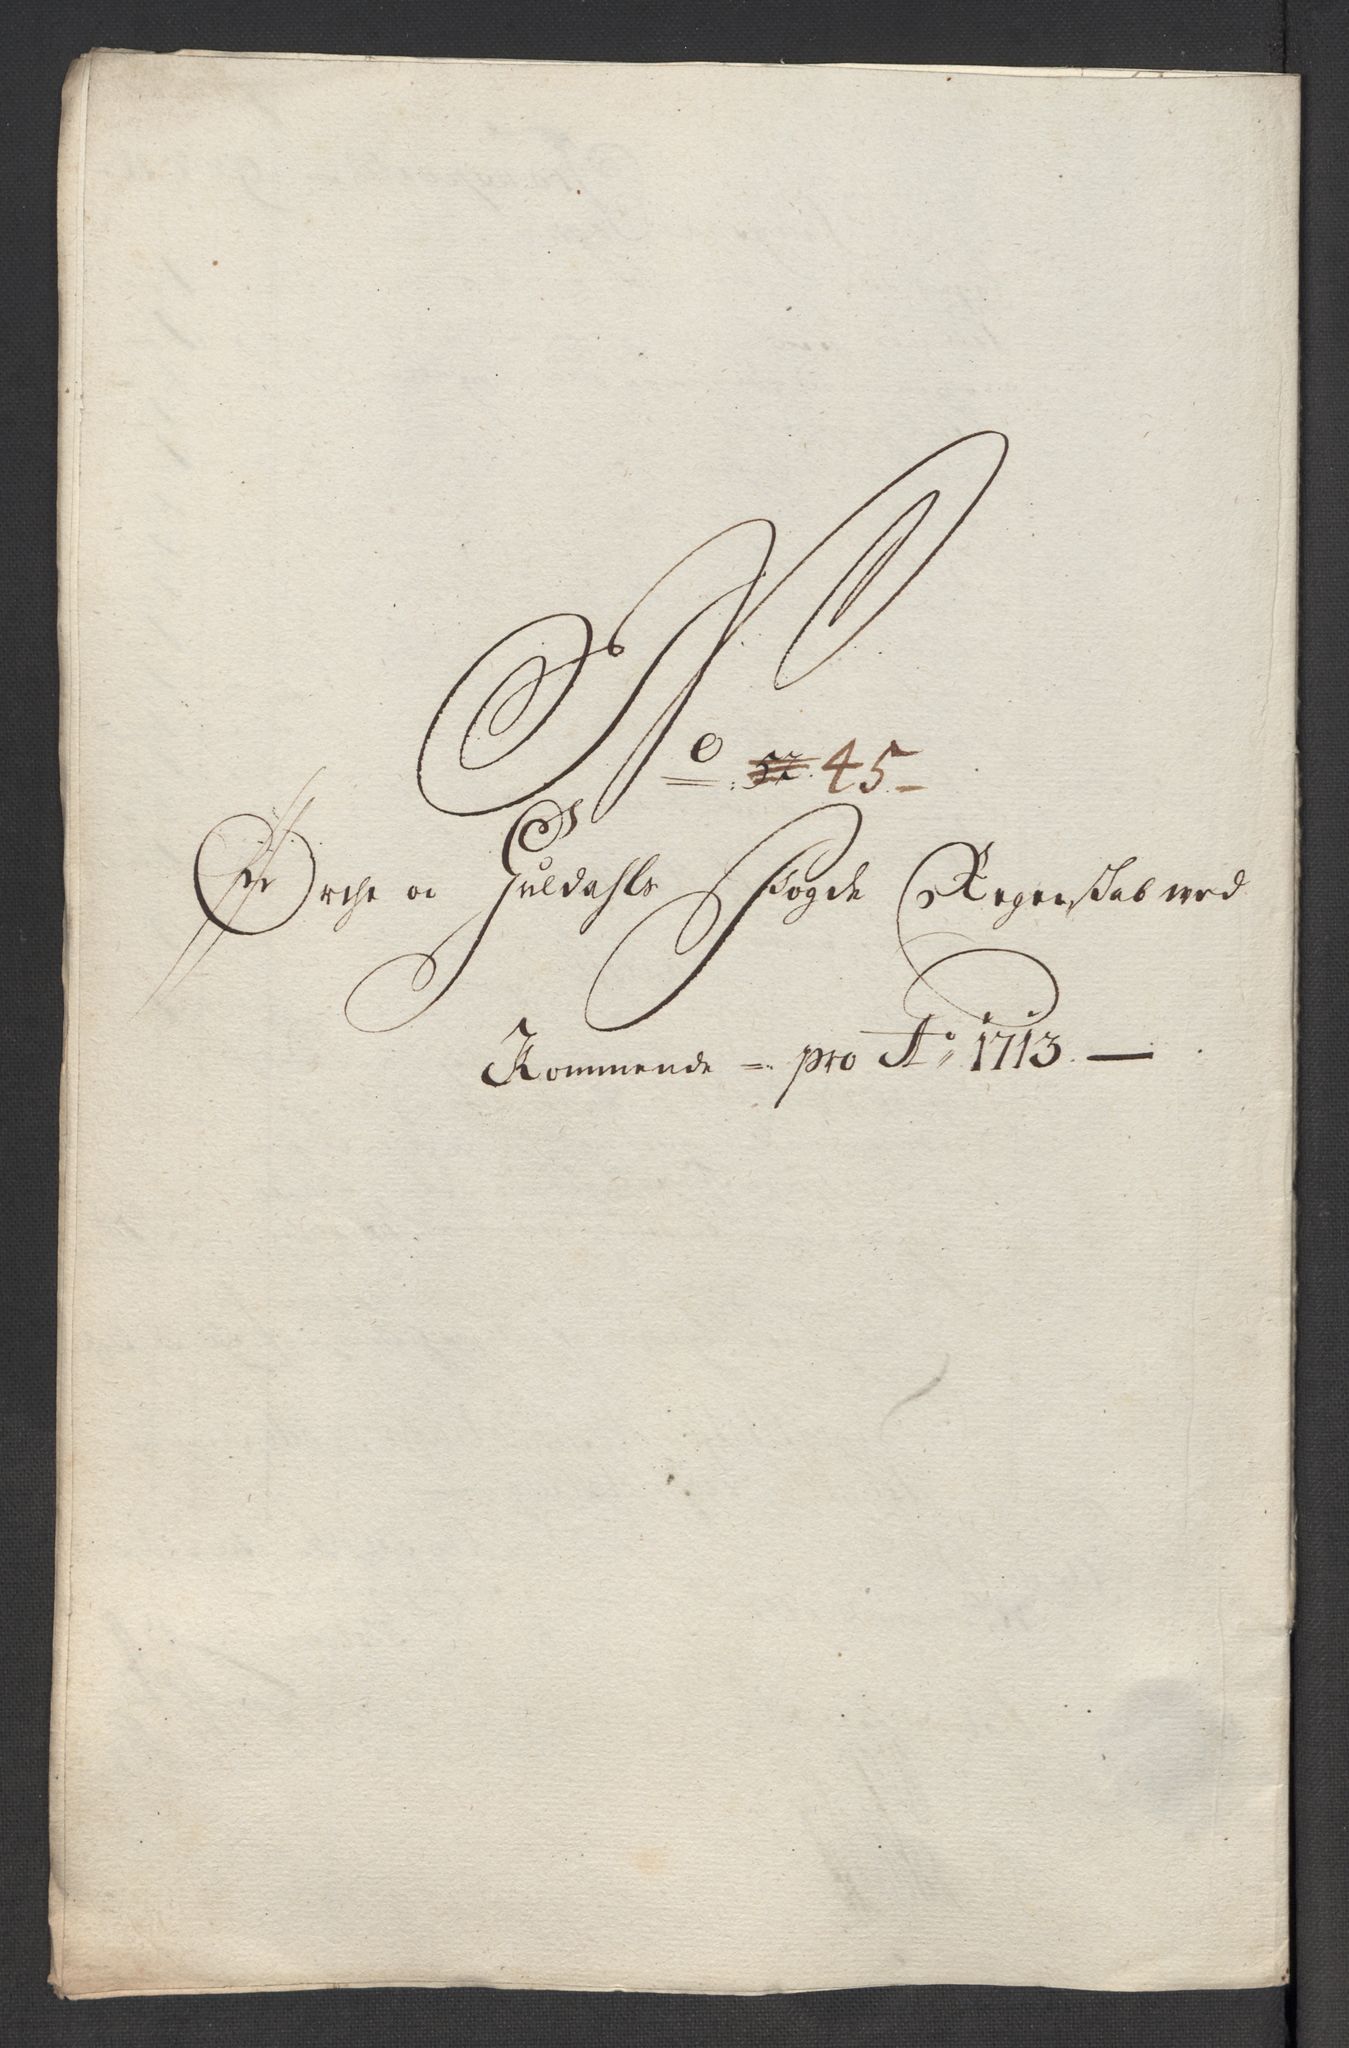 No 45
Orche og Guldahls Fogde Regenskab wed
Kommende = pro Ao 1713